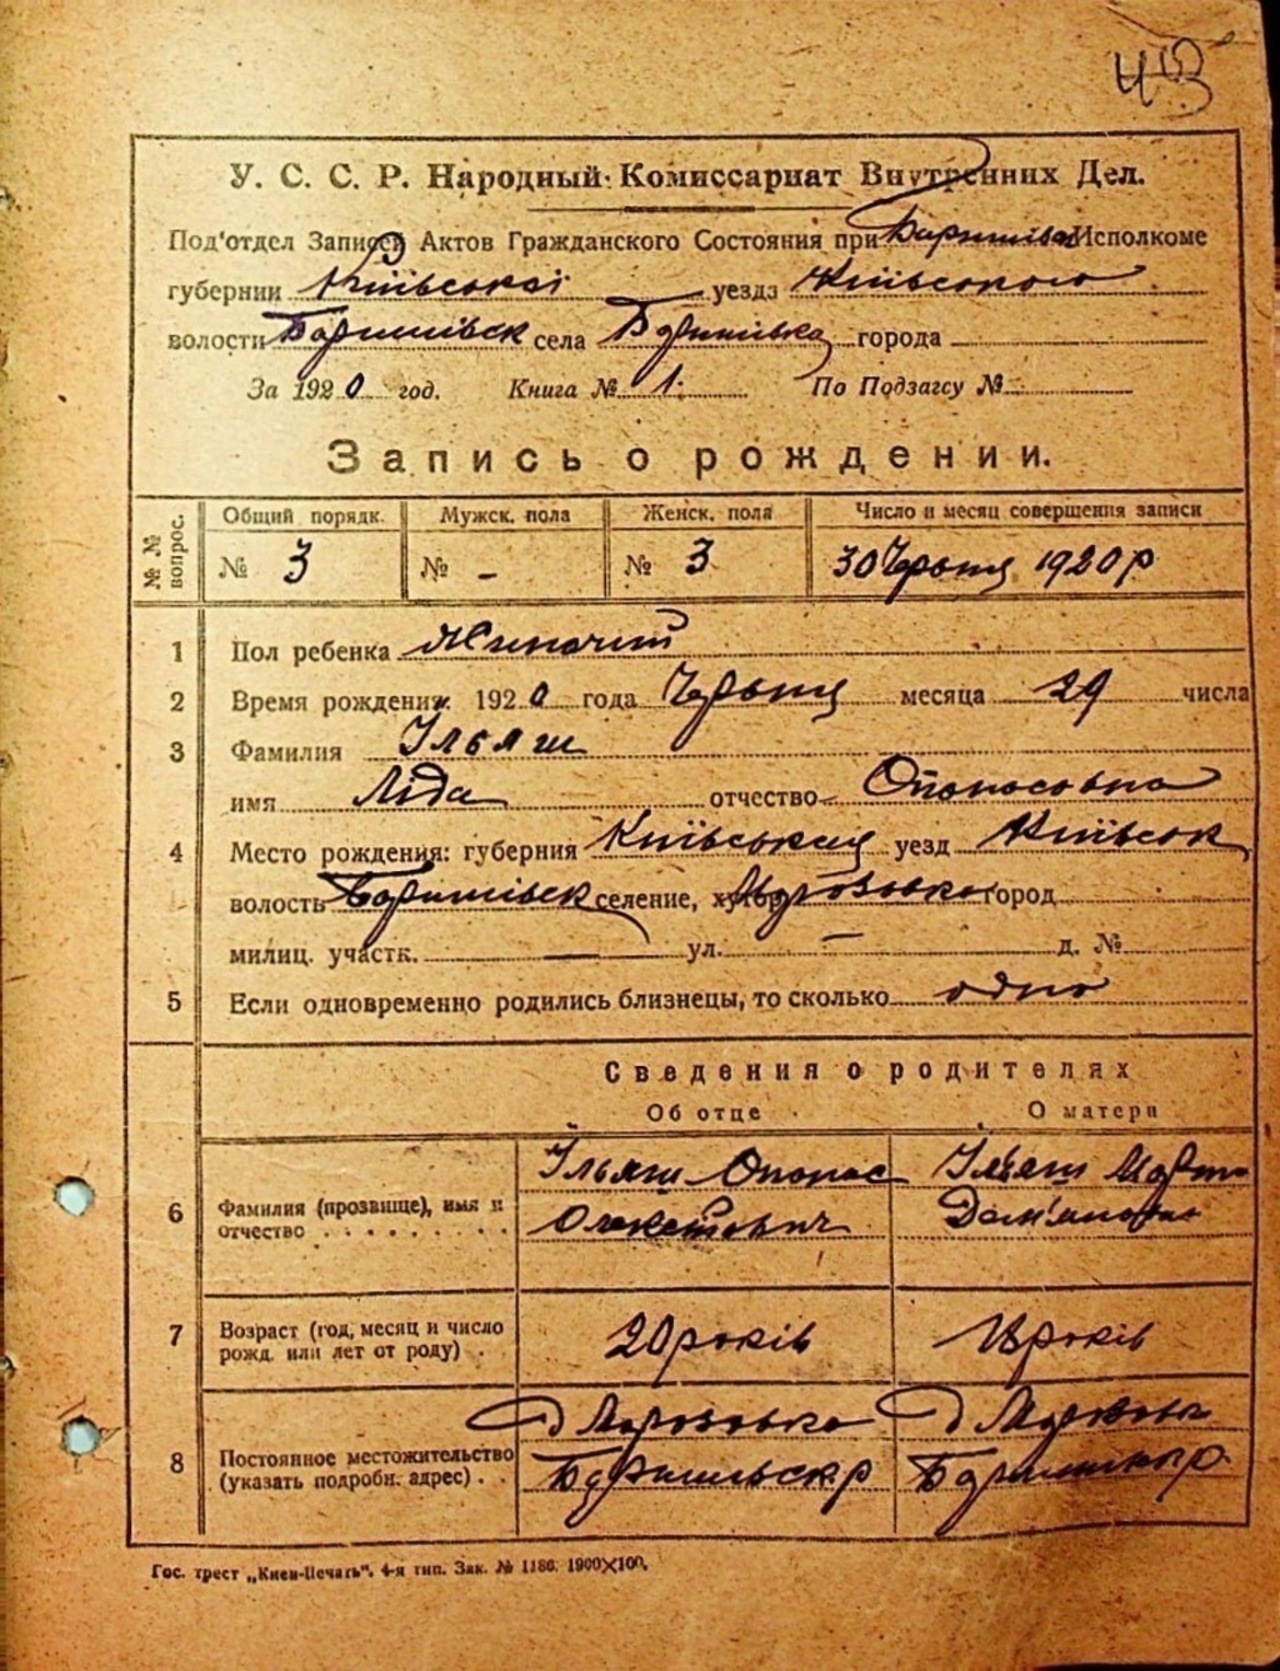 43
У. С. С. Р. Народный Комиссариат Внутренних Дел.
Под'отдел Записи Актов Гражданского Состояния при Исполкоме
губернии Київської уезда Київського
волости Баришівськ села Баришівка города
За 1920 год. Книга № 1. По Подзагсу №
Запись о рождении.
№ № вопрос. Общий порядк. Мужск. пола Женск. пола Число и месяц совершения записи
№ 3 № - № 3 30 Червня 1920 р
1 Пол ребенка Жиночий
2 Время рождения 1920 года Червня месяца 29 числа
3 Фамилия Ільяш
имя Ліда отчество Опонасовна
4 Место рождения: губерния Київськая уезд Київськ
волость Баришівськ селение, хутор Морозовка город
милиц. участк. — ул. — д. №
5 Если одновременно родились близнецы, то сколько одно
Сведения о родителях
Об отце О матери
6 Фамилия (прозвище), имя и отчество Ільяш Опонас Ільяш Марта
Дем'яновна
7 Возраст (год, месяц и число рожд. или лет от роду) 20 років 18 років
8 Постоянное местожительство (указать подробн. адрес) Морозовка
Гос. трест „Киев-Печать". 4-я тип. Зак. № 1186. 1900×100.